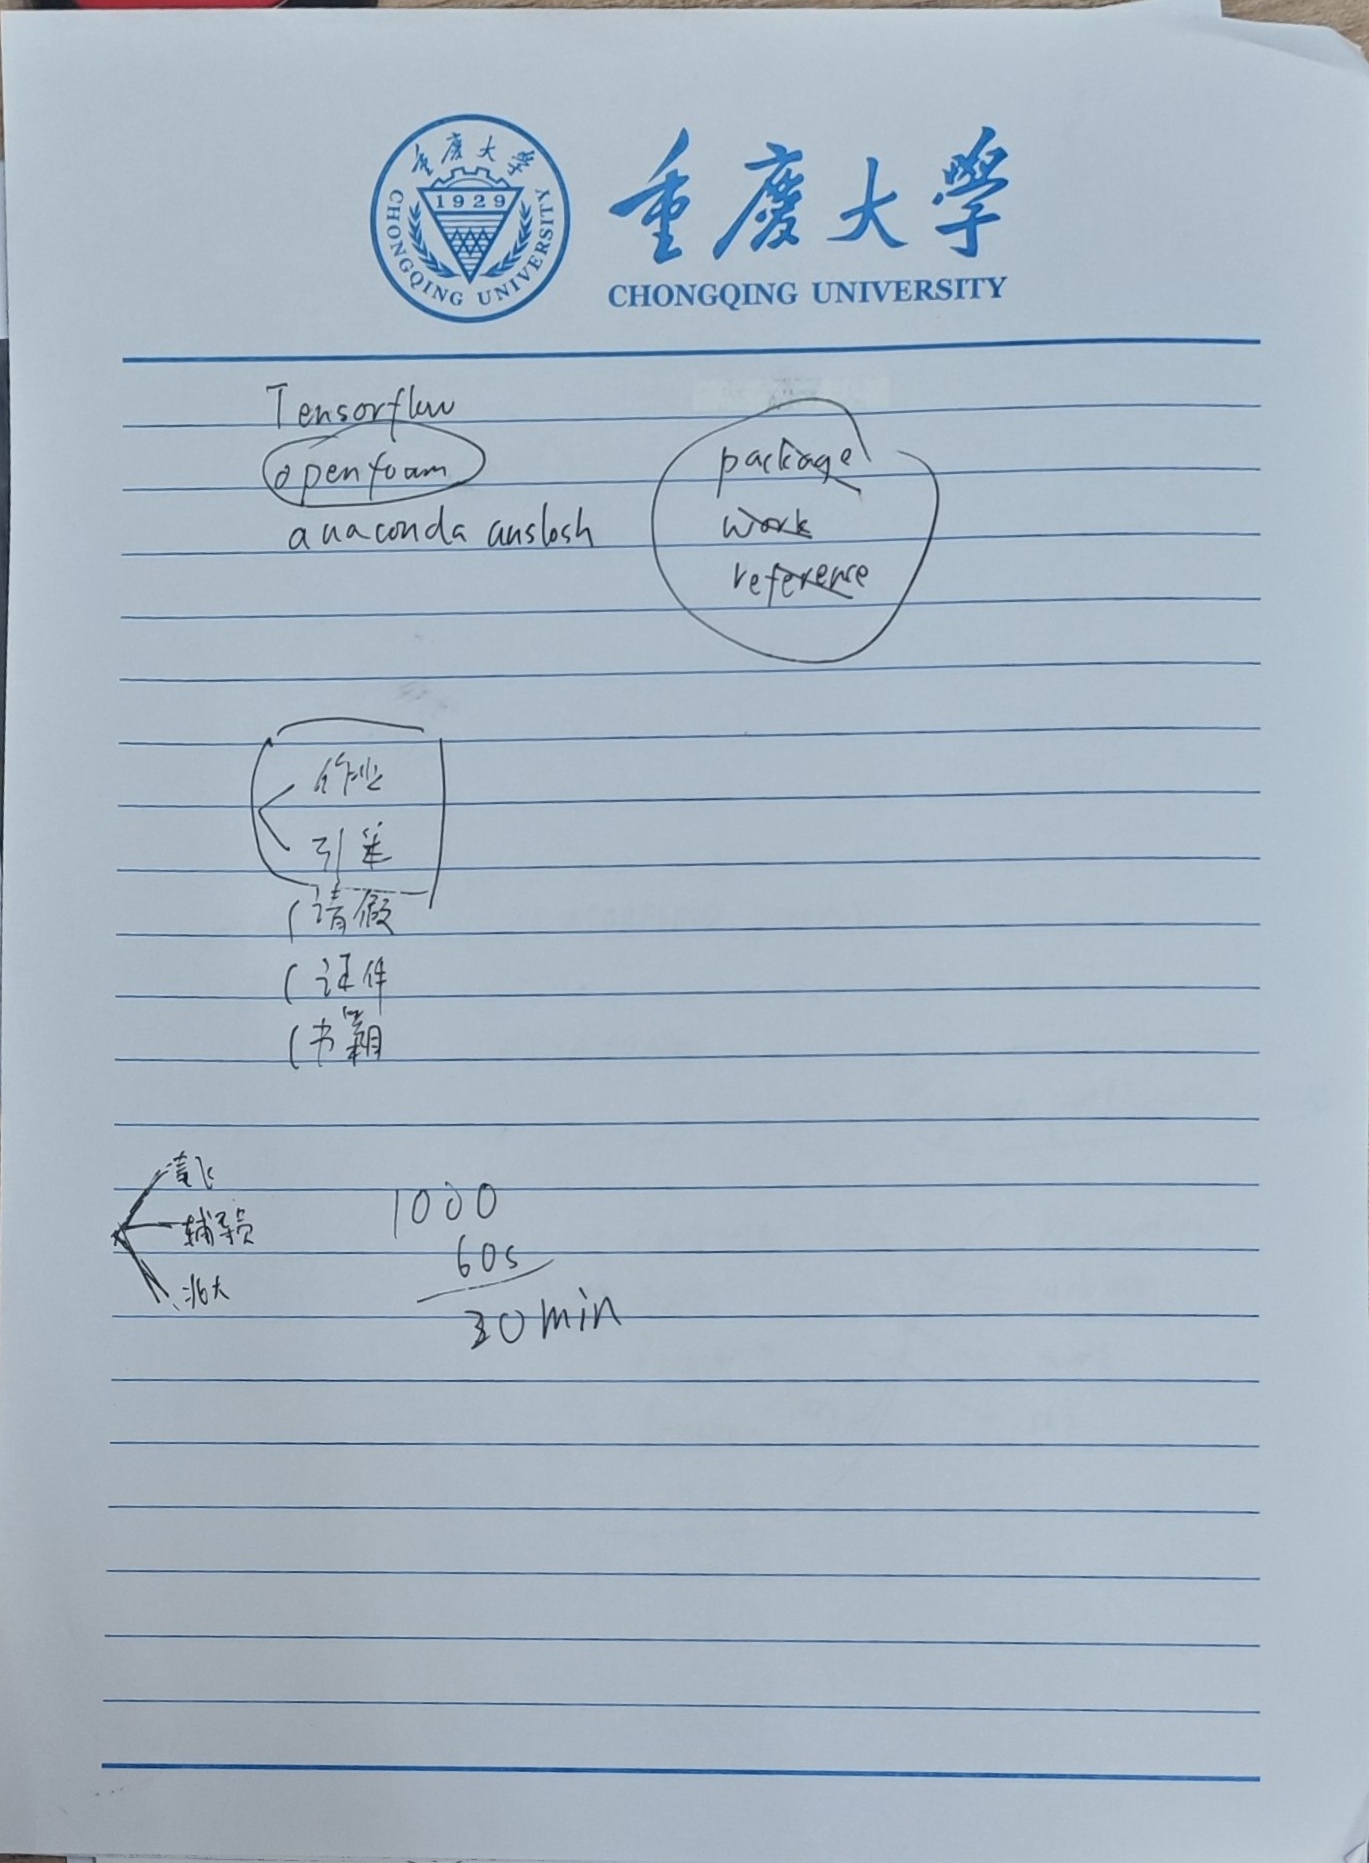 重庆大学
1929
CHONGQING UNIVERSITY
重慶大學
CHONGQING UNIVERSITY
Tensorflow
openfoam
anaconda
package
work
reference
作业
引
请假
证件
书籍
辅导员
1000
60s
30min